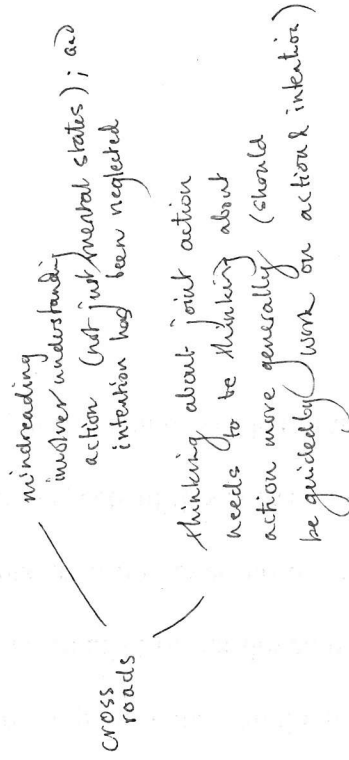 cross
roads
mindreading
involves understanding
action (not just mental states); and
intention has been neglected
thinking about joint action
needs to be thinking about
action more generally (should
be guided by work on action & intention)